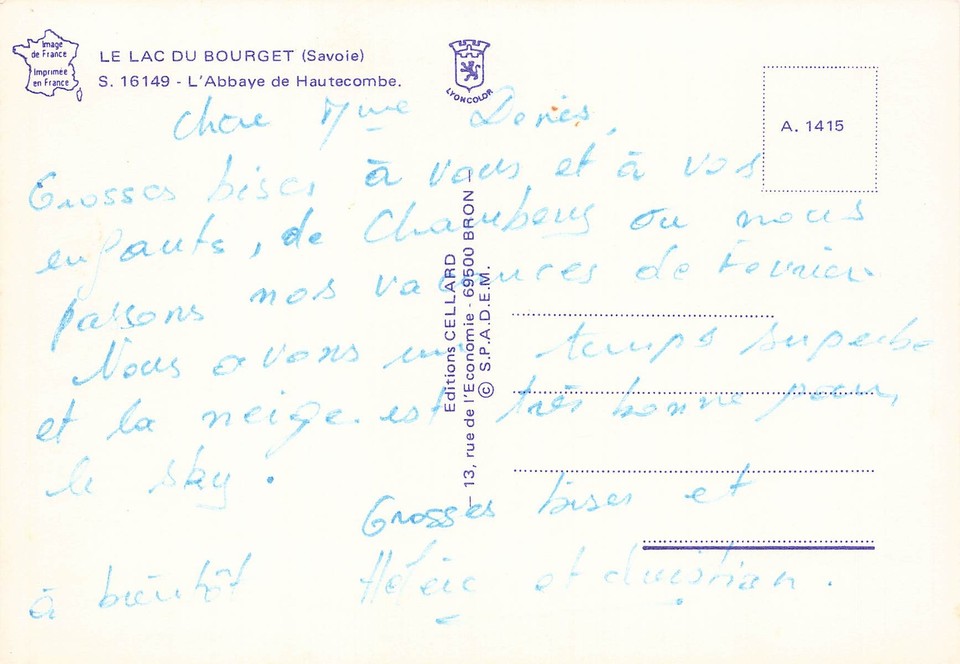 Image
de France
Imprimée
en France
LE LAC DU BOURGET (Savoie)
S. 16149 - L'Abbaye de Hautecombe.
LYONCOLOR
A. 1415
Editions CELLARD
— 13, rue de l'Economie - 69500 BRON —
© S.P.A.D.E.M.
Chere Mme Denis,
Grosses bises à vous et à vos
enfants, de Chambery ou nous
passons nos vacances de Fevrier
Nous avons un temps superbe
et la neige est très bonne pour
le sky.
Grosses bises et
à bientôt et Christian.